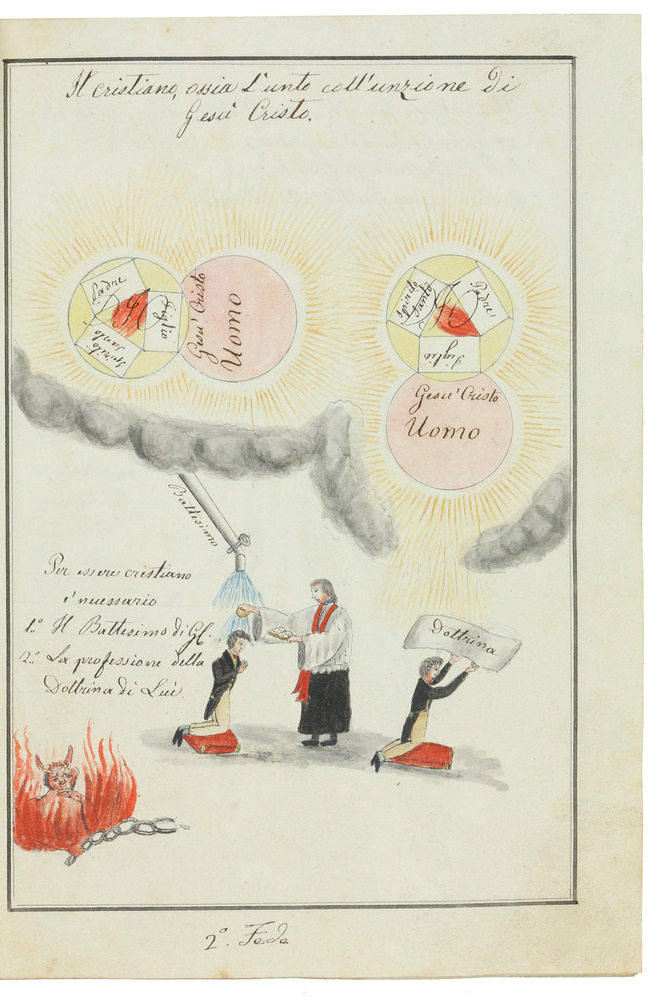 Il cristiano, ossia L'unto coll'unzione di
Gesù Cristo.
Padre
Figlio
Spirito
Santo
Gesu' Cristo
Uomo
Spirito
Santo
Padre
Figlio
Gesu' Cristo
Uomo
Battesimo
Per essere cristiano
e' necessario
1.° Il Battesimo di G.C.
2.° La professione della
Dottrina di Lui.
Dottrina
2.° Fede